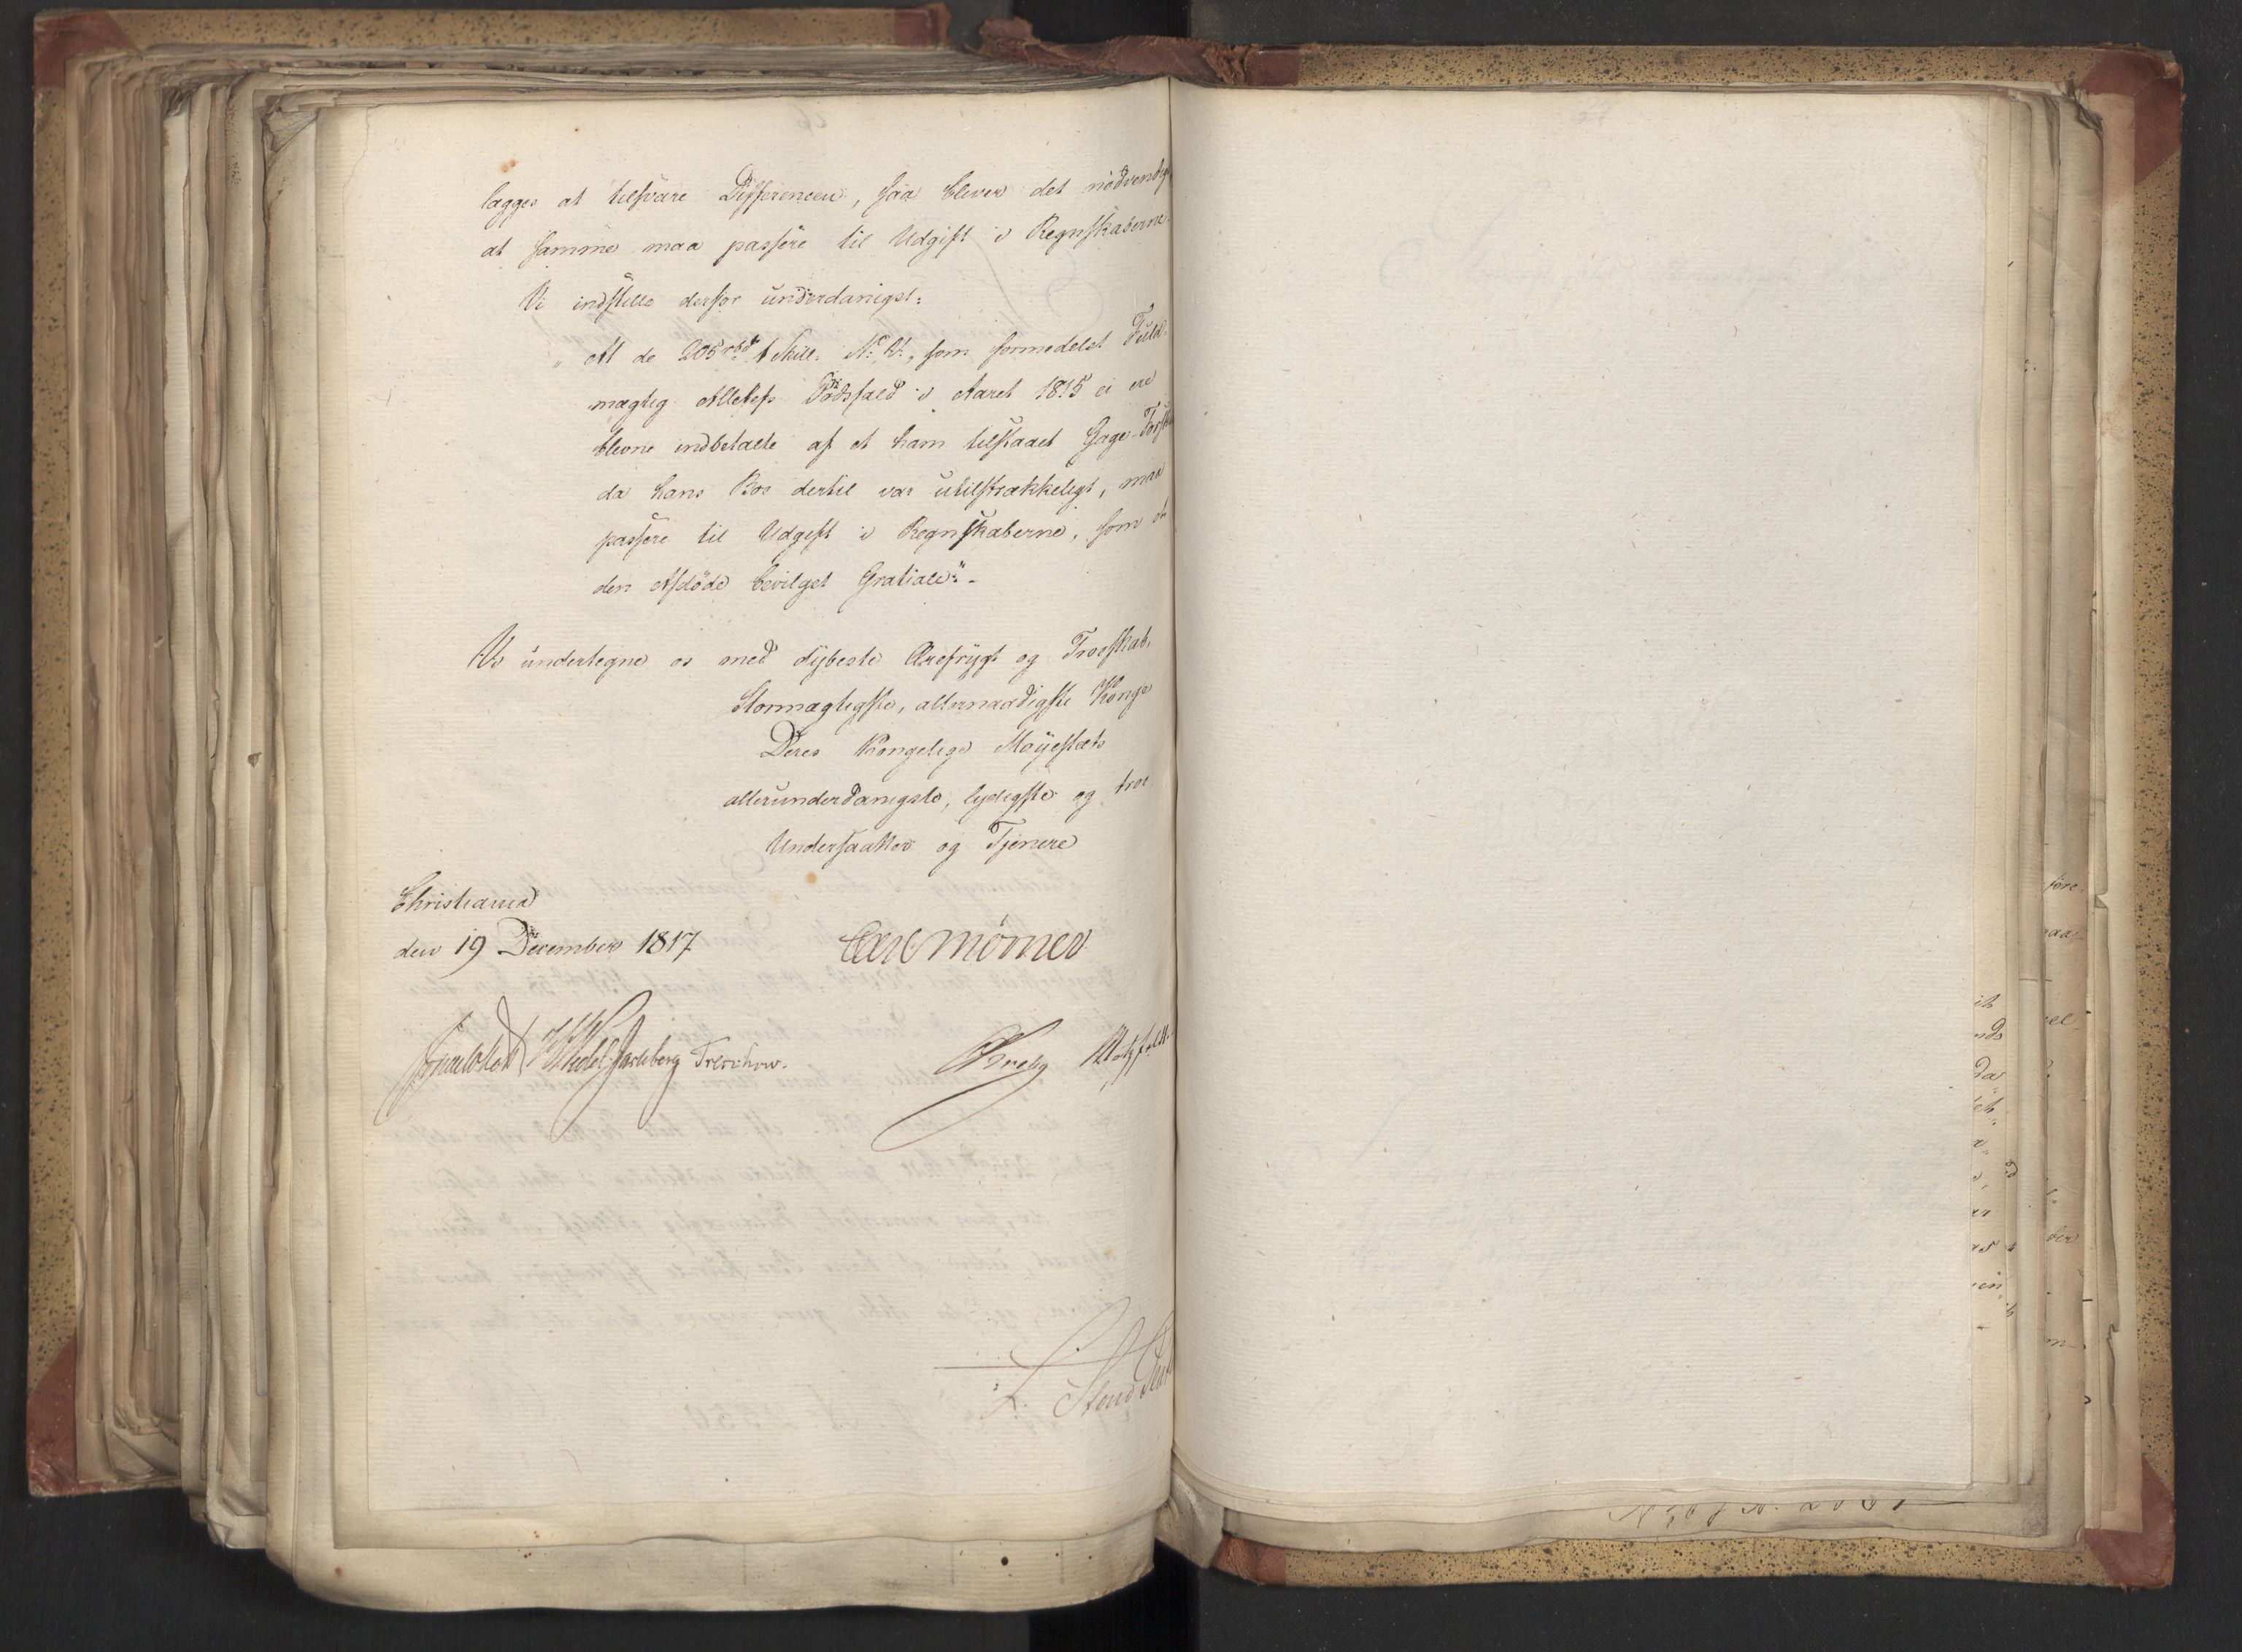 lægges at tilsvare Differencen, saa bliver det nødvendigt
at samme maa passere til Udgift i Regnskaberne.
Vi indstille derfor underdanigst:
„At de 205 rbd 1 Skill. N. V., som formedelst Fuld-
mægtig Dødsfald i Aaret 1815 ei ere
blevne indbetalte af et ham tilstaaet Gage-Forskud
da hans Boe dertil var utilstrækkeligt, maa
passere til Udgift i Regnskaberne, som et
den Afdøde bevilget Gratiale“.
Vi undertegne os med dybeste Ærefrygt og Troeskab.
Stormægtigste, allernaadigste Konge
Deres Kongelige Mayestæts
allerunderdanigste, lydigste og troe
Undersaatter og Tjenere
Christiania
den 19 December 1817
Carl Mörner
Sommerhielm Wedel Jarlsberg Treschow.
Krebs Motzfeldt